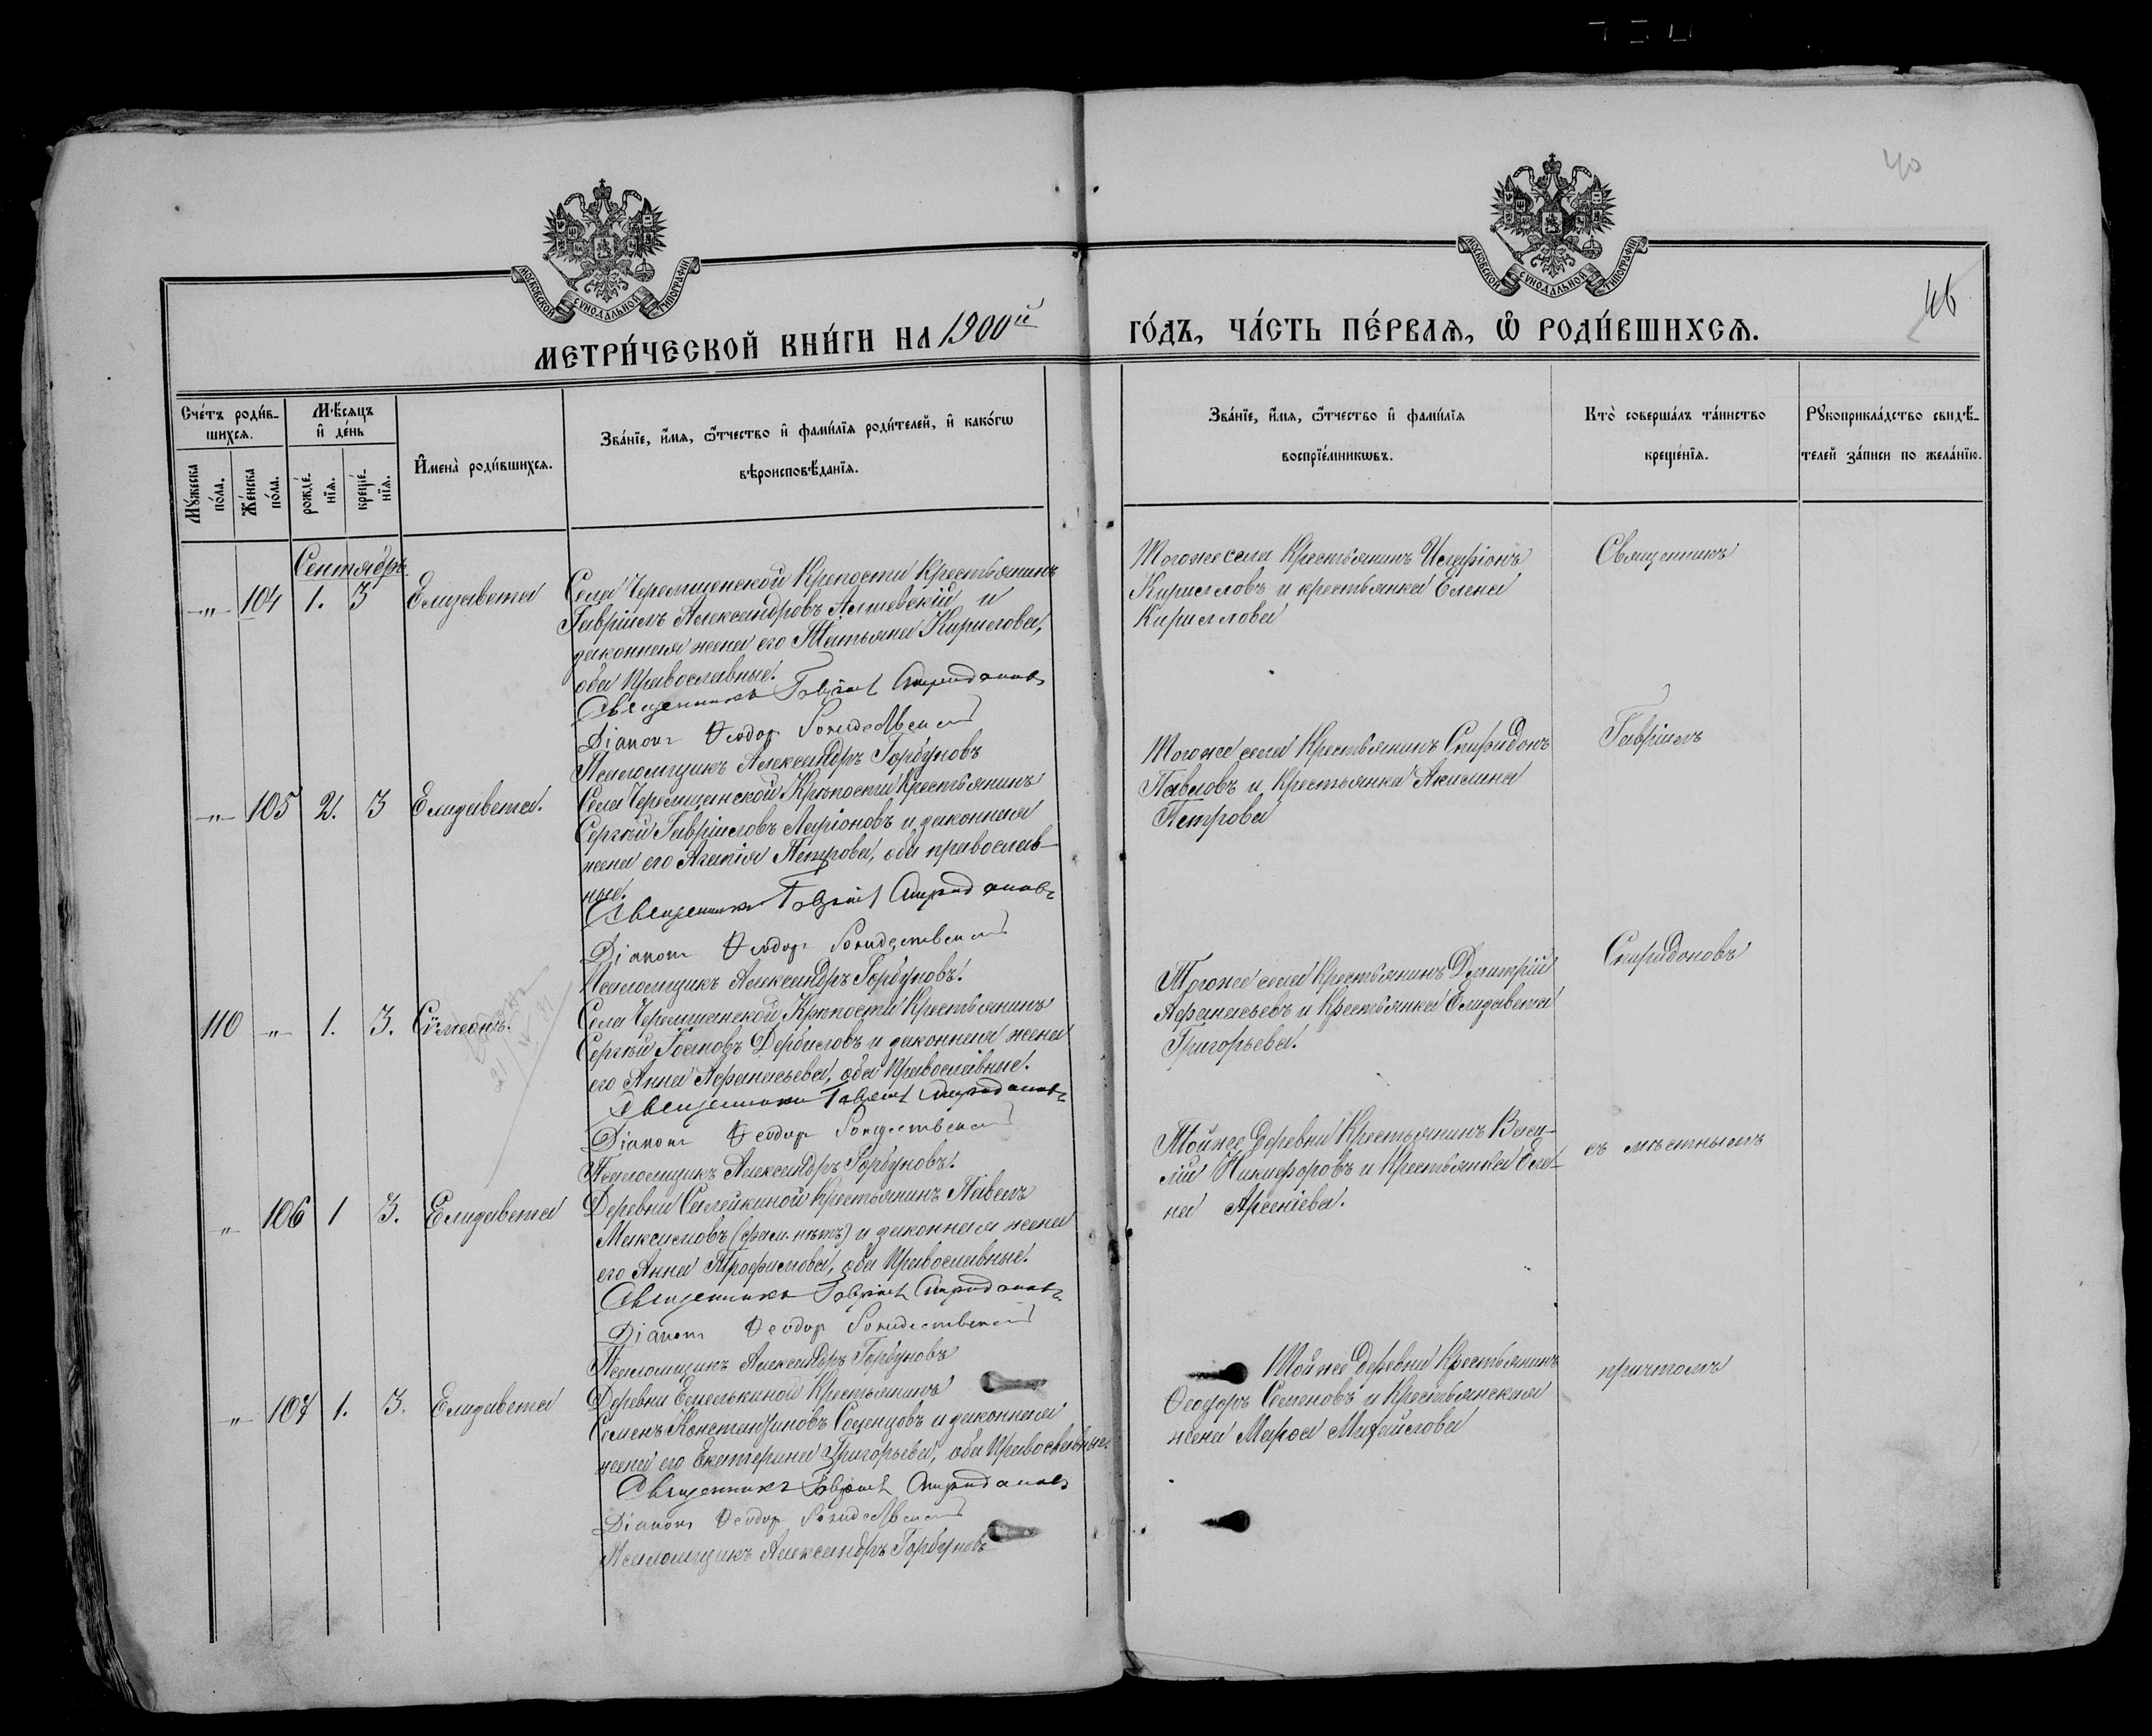 40
46
МОСКОВСКОЙ СѴНОДАЛЬНОЙ ТИПОГРАФІИ
МОСКОВСКОЙ СѴНОДАЛЬНОЙ ТИПОГРАФІИ
МЕТРИ́ЧЕСКОЙ КНИ́ГИ НА 1900й ГО́ДЪ, ЧА́СТЬ ПЕ́РВАѦ, Ѡ҆ РОДИ́ВШИХСѦ.
Сче́тъ роди́в-
шихсѧ.
Мѣ́сѧцъ
и҆ де́нь
Мꙋ́жеска
по́ла.
Же́нска
по́ла.
рожде́-
нїѧ.
креще́-
нїѧ.
И҆мена̀ роди́вшихсѧ.
Зва́нїе, и҆́мѧ, ѻ҆́тчество и҆ фами́лїѧ роди́телей, и҆ како́гѡ
вѣроисповѣ́данїѧ.
Зва́нїе, и҆́мѧ, ѻ҆́тчество и҆ фами́лїѧ
воспрїе́мникѡвъ.
Кто̀ соверша́лъ та́инство
креще́нїѧ.
Рꙋкоприкла́дство свидѣ́-
телей за́писи по жела́нїю.
Сентябрь
-„- 104 1. 3 Елизавета
Села Черемшанской Крепости Крестьянинъ
Гавріилъ Александровъ Алшевскій и
законная жена его Татьяна Кирилова,
оба Православные.
Священникъ Гавріил Спиридоновъ
Діаконъ Ѳеодор Рождественскій
Псаломщикъ Александръ Горбуновъ
Тогоже села Крестьянинъ Иларіонъ
Кирилловъ и крестьянка Елена
Кириллова
Священникъ
-„- 105 2. 3 Елизавета.
Села Черемшанской Крѣпости Крестьянинъ
Сергѣй Гавріиловъ Ларіоновъ и законная
жена его Агапія Петрова, оба православ-
ные.
Священникъ Гавріил Спиридоновъ
Діаконъ Ѳеодоръ Рождественскій
Псаломщикъ Александръ Горбуновъ.
Тогоже села Крестьянинъ Спиридонъ
Павловъ и Крестьянка Акилина
Петрова
Гавріилъ
110 -„- 1. 3. Сѵмеонъ.
Села Черемшанской Крѣпости Крестьянинъ
Сергѣй Іоановъ Дербиловъ и законная жена
его Анна Афанасьева, оба Православные.
Священникъ Гавріил Спиридоновъ
Діаконъ Ѳеодоръ Рождественскій
Псаломщикъ Александръ Горбуновъ.
Тогоже села Крестьянинъ Димитрій
Афанасьевъ и Крестьянка Елизавета
Григорьева.
Спиридоновъ
„ 106 1 3. Елизавета
Деревни Салейкиной Крестьянинъ Павелъ
Максимовъ (фам. нѣтъ) и законная жена
его Анна Трофимова, оба Православные.
Священникъ Гавріил Спиридоновъ
Діаконъ Ѳеодоръ Рождественскій
Псаломщикъ Александръ Горбуновъ
Тойже Деревни Крестьянинъ Васи-
лій Никифоровъ и Крестьянка Еле-
на Арсеніева.
съ мѣстнымъ
„ 107 1. 3. Елизавета
Деревни Емелькиной Крестьянинъ
Семенъ Константиновъ Соенцовъ и законная
жена его Екатерина Григорьева, оба Православные.
Священникъ Гавріил Спиридоновъ
Діаконъ Ѳеодоръ Рождественскій
Псаломщикъ Александръ Горбуновъ
Тойже Деревни Крестьянинъ
Ѳеодоръ Семеновъ и Крестьянская
жена Марѳа Михайлова
причтомъ